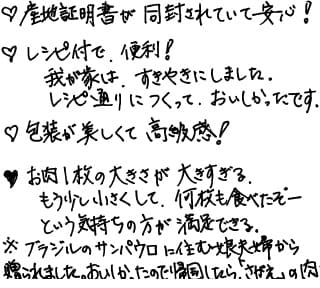 ♡ 産地証明書が同封されていて安心！
♡ レシピ付で、便利！
我が家は、すきやきにしました。
レシピ通りにつくって、おいしかったです。
♡ 包装が美しくて高級感！
♥ お肉1枚の大きさが大きすぎる。
もう少し小さくして、何枚も食べたぞー
という気持ちの方が満足できる。
※ ブラジルのサンパウロに住む娘夫婦から
贈られました。おいしかったので帰国したら、「さがえ」の肉